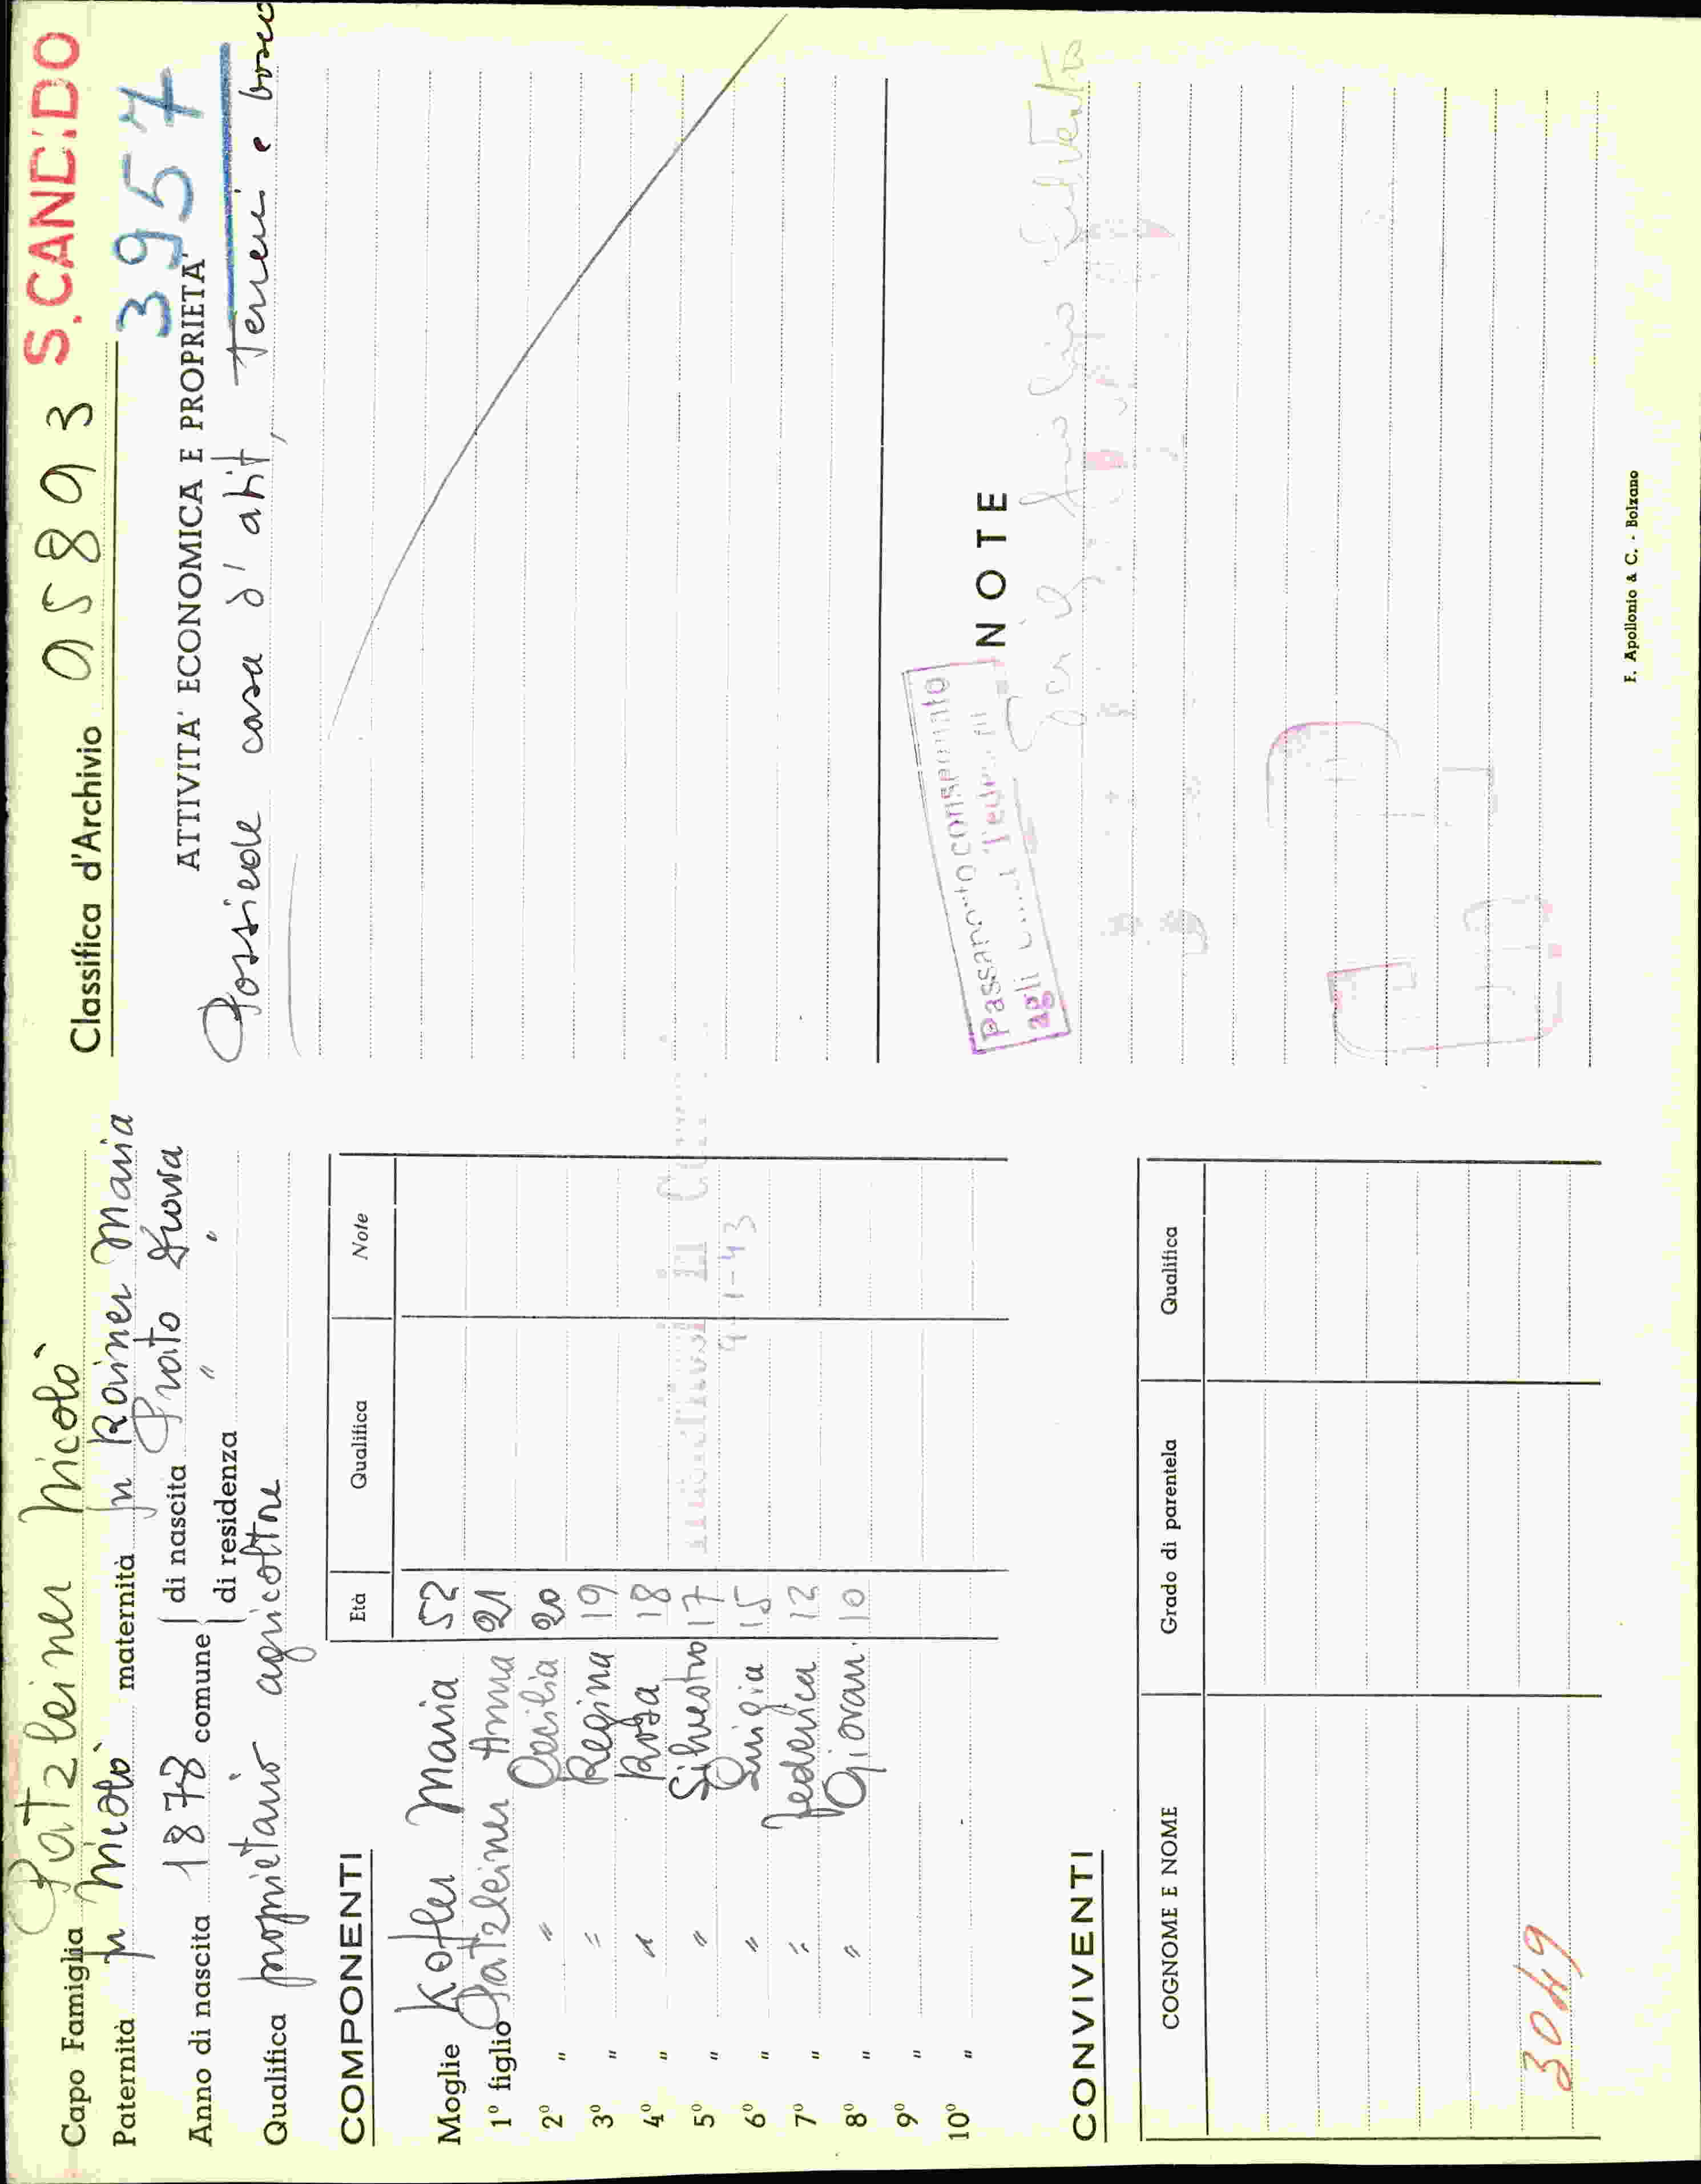 Capo Famiglia Patzleiner Nicolò
Paternità fu Nicolò maternità fu Rainer Maria
Anno di nascita 1878 comune di nascita Prato Drava
di residenza " "
Qualifica proprietario agricoltore
COMPONENTI
Età Qualifica Note
Moglie Kofler Maria 52
1º figlio Patzleiner Anna 21
2º " " Cecilia 20
3º " " Regina 19
4º " " Rosa 18
5º " " Silvestro 17
6º " " Luigia 15
7º " " Federica 12
8º " " Giovan. 10
9º "
10º "
4-1-43
CONVIVENTI
COGNOME E NOME Grado di parentela Qualifica
3049
Classifica d'Archivio 05893 S. CANDIDO
3957
ATTIVITA' ECONOMICA E PROPRIETA'
Possiede casa d'abit, terreni e bosco
NOTE
Passaporto consegnato
agli
F. Apollonio & C. - Bolzano